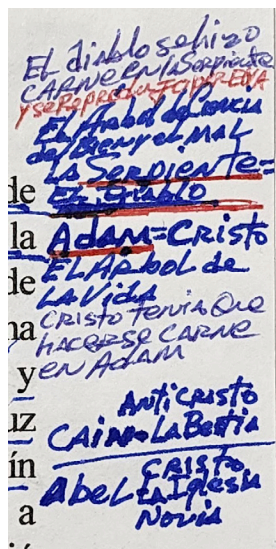 El diablo se hizo
CARNE en la Serpiente
y se Reprodujo por EVA
El Arbol de Ciencia
del Bien y el MAL
LA SERPIENTE=
de El Diablo
la ADAM=CRISTO
de EL ARbol de
LA Vida
na CRISTO tenia Que
HACERSE CARNE
y en ADAM
ANTICRISTO
uz CAIN=LA Bestia
ín CRISTO
Abel LA Iglesia
a NOVIA